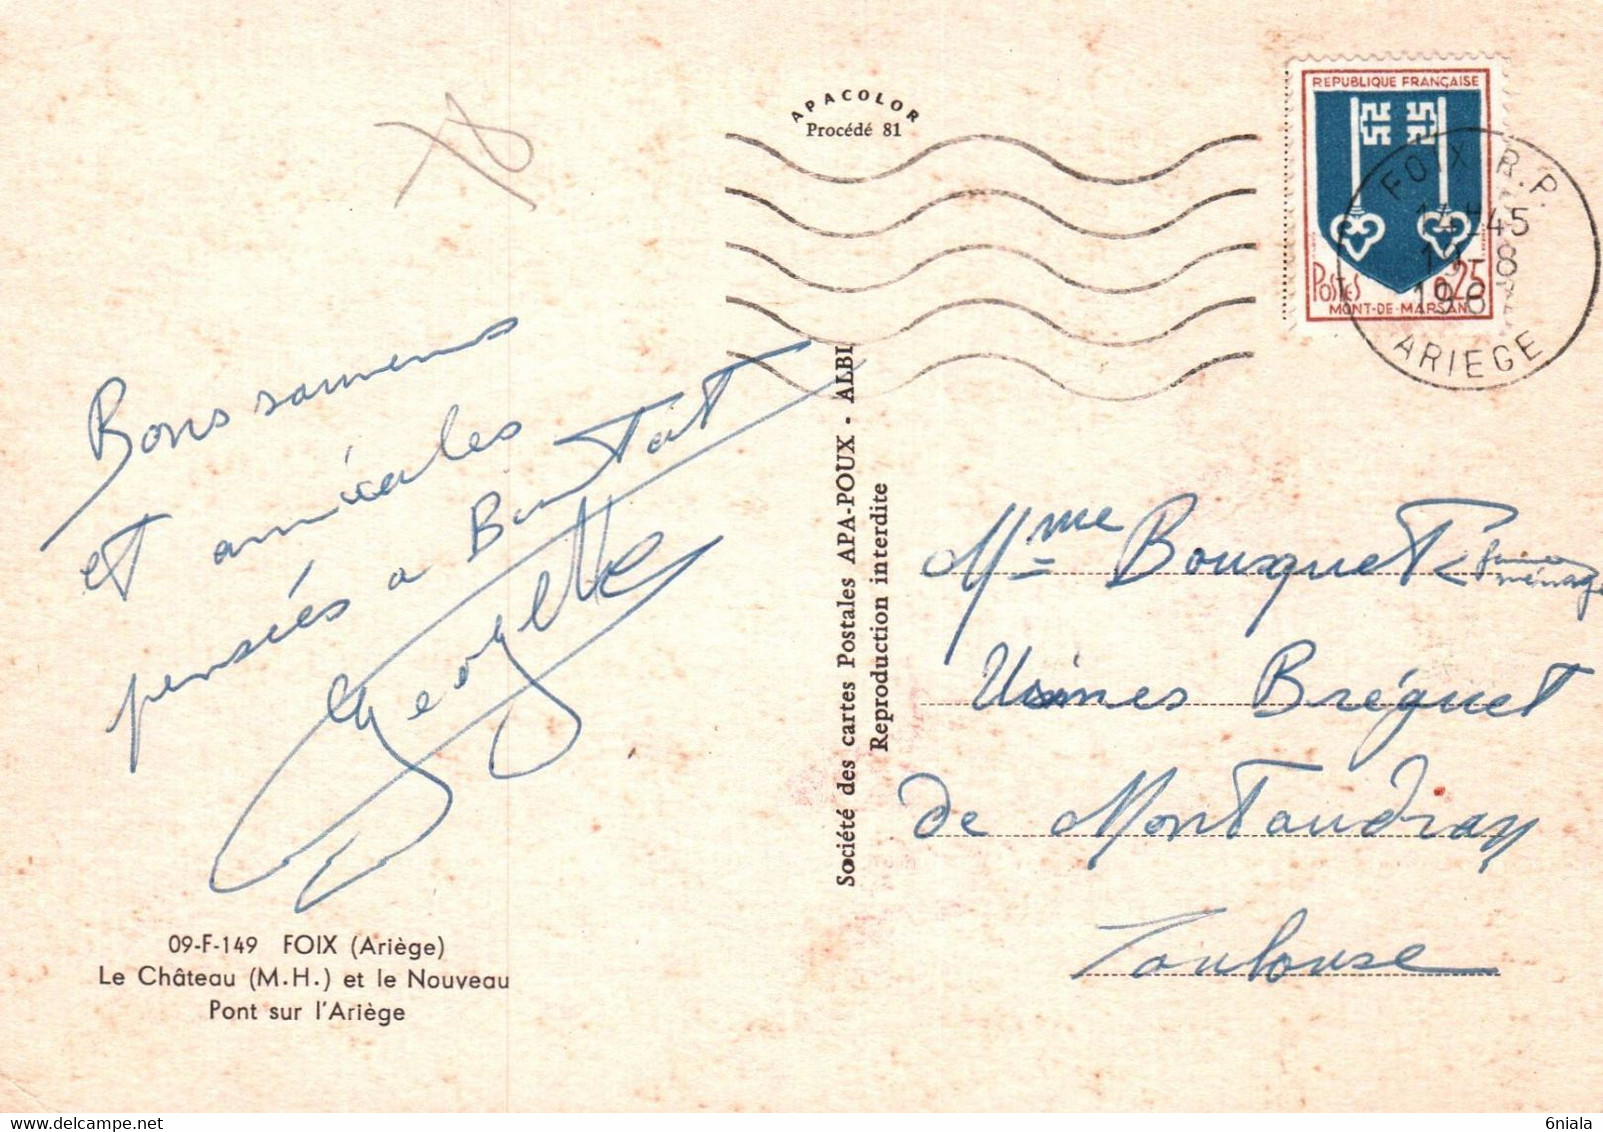 APACOLOR
Procédé 81
REPUBLIQUE FRANÇAISE
POSTES 0,25
MONT-DE-MARSAN
FOIX R.P.
14-45
19-8
196
ARIEGE
78
Bons souvenirs
et amicales
pensées a Bientot
Georgette
09-F-149 FOIX (Ariège)
Le Château (M.H.) et le Nouveau
Pont sur l'Ariège
Société des cartes Postales APA-POUX - ALBI
Reproduction interdite
Mme Bousquet
ménage
Usines Bréguet
de Montaudran
Toulouse
6niala